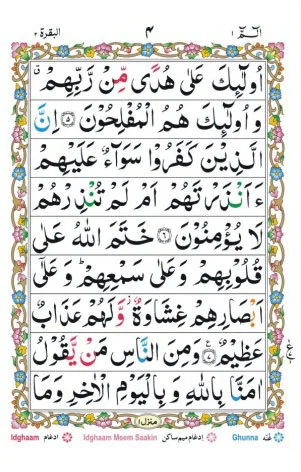 الٓمّٓ ١ ٤ البقرة ٢
اُولٰٓئِكَ عَلٰى هُدًى مِّنْ رَّبِّهِمْ ۗ
وَ اُولٰٓئِكَ هُمُ الْمُفْلِحُوْنَ ۝٥ اِنَّ
الَّذِيْنَ كَفَرُوْا سَوَآءٌ عَلَيْهِمْ
ءَاَنْذَرْتَهُمْ اَمْ لَمْ تُنْذِرْهُمْ
لَا يُؤْمِنُوْنَ ۝٦ خَتَمَ اللّٰهُ عَلٰى
قُلُوْبِهِمْ وَ عَلٰى سَمْعِهِمْ ؕ وَ عَلٰٓى
اَبْصَارِهِمْ غِشَاوَةٌ ؗ وَّ لَهُمْ عَذَابٌ
عَظِيْمٌ ۝٧ وَ مِنَ النَّاسِ مَنْ يَّقُوْلُ
اٰمَنَّا بِاللّٰهِ وَ بِالْيَوْمِ الْاٰخِرِ وَ مَا
منزل ١
Idghaam ادغام Idghaam Meem Saakin ادغام ميم ساكن Ghunna غنّه